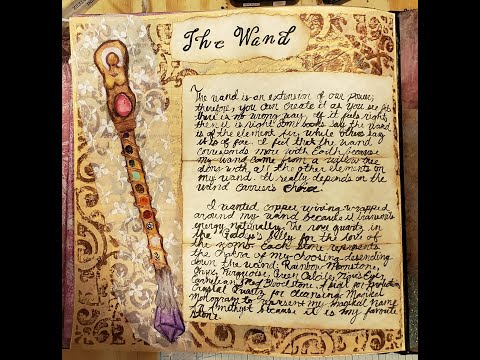 The Wand
The wand is an extension of our power,
therefore, you can create it as you see fit
there is no wrong way. If it feels right,
then it is right. Some books say the wand
is of the element Air while others say
it is of fire. I feel that the wand
corresponds more with Earth because
my wand came from a willow tree
along with all the other elements on
my wand. It really depends on the
wand carrier's choice.
I wanted copper wiring wrapped
around my wand because it transmits
energy naturally. The rose quartz in
the Goddess's Belly for the love of
the womb. Each stone represents
the chakra of my choosing, descending
down the wand: Rainbow Moonstone,
Onyx, Turquoise, Green Calcite, Tiger's Eye,
Carnelian, and Bloodstone. A for protection,
Crystal Quartz for cleansing. Magical
Monogram to represent my magickal name
& Amethyst because it is my favorite
stone.